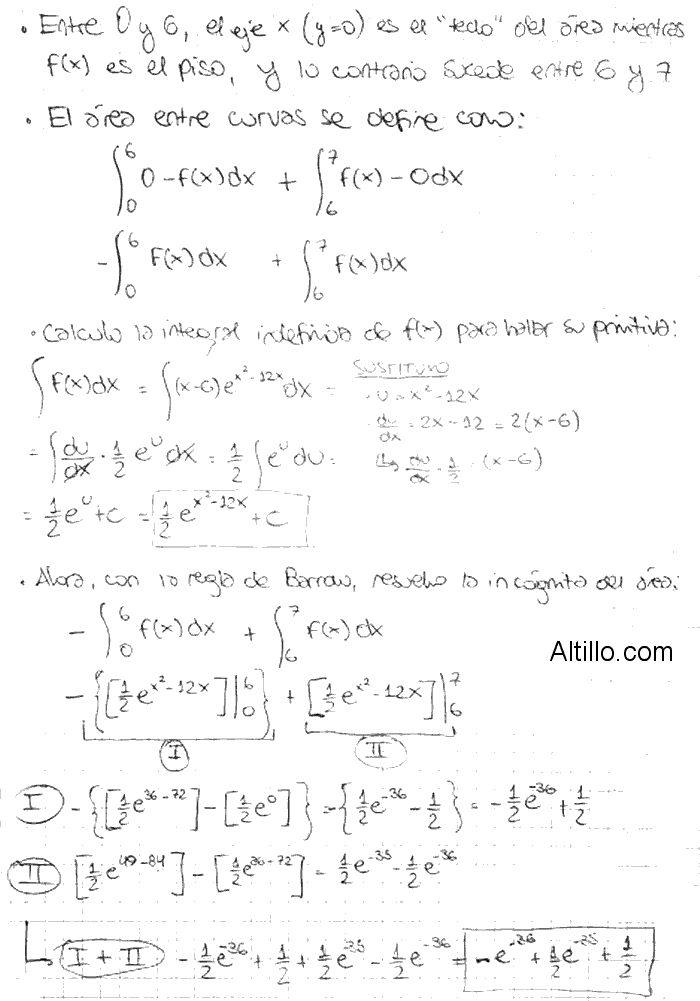 • Entre 0 y 6, el eje x (y=0) es el "techo" del área mientras
f(x) es el piso, y lo contrario sucede entre 6 y 7
• El área entre curvas se define como:
∫₀⁶ 0 - f(x) dx + ∫₆⁷ f(x) - 0 dx
-∫₀⁶ f(x) dx + ∫₆⁷ f(x) dx
• Calculo la integral indefinida de f(x) para hallar su primitiva:
∫ f(x) dx = ∫ (x-6) e^(x²-12x) dx = SUSTITUYO
• u = x² - 12x
• du/dx = 2x - 12 = 2(x-6)
= ∫ du/dx · 1/2 e^u dx = 1/2 ∫ e^u du = ↳ du/dx · 1/2 = (x-6)
= 1/2 e^u + C = 1/2 e^(x²-12x) + C
• Ahora, con la regla de Barrow, resuelvo la incógnita del área:
- ∫₀⁶ f(x) dx + ∫₆⁷ f(x) dx
- {[1/2 e^(x²-12x)]|₀⁶} + [1/2 e^(x²-12x)]|₆⁷
I II
Altillo.com
I - {[1/2 e^(36-72)] - [1/2 e^0]} = -{1/2 e^(-36) - 1/2} = -1/2 e^(-36) + 1/2
II [1/2 e^(49-84)] - [1/2 e^(36-72)] = 1/2 e^(-35) - 1/2 e^(-36)
↳ I + II - 1/2 e^(-36) + 1/2 + 1/2 e^(-35) - 1/2 e^(-36) = -e^(-36) + 1/2 e^(-35) + 1/2